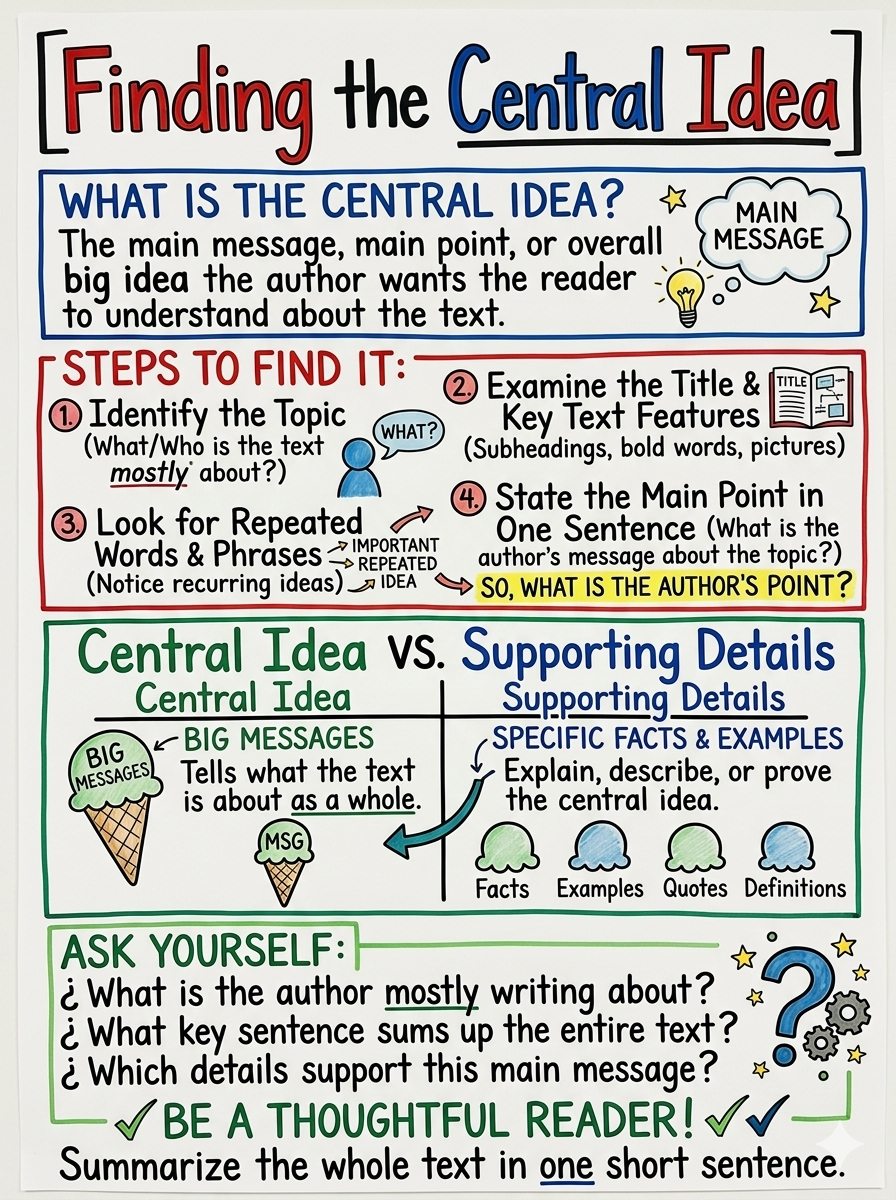 [Finding the Central Idea]
WHAT IS THE CENTRAL IDEA?
The main message, main point, or overall
big idea the author wants the reader
to understand about the text.
MAIN
MESSAGE
STEPS TO FIND IT:
1. Identify the Topic
(What/Who is the text
mostly* about?)
WHAT?
2. Examine the Title &
Key Text Features
(Subheadings, bold words, pictures)
TITLE
3. Look for Repeated
Words & Phrases
(Notice recurring ideas)
IMPORTANT
REPEATED
IDEA
4. State the Main Point in
One Sentence (What is the
author's message about the topic?)
SO, WHAT IS THE AUTHOR'S POINT?
Central Idea VS. Supporting Details
Central Idea
BIG
MESSAGES
BIG MESSAGES
Tells what the text
is about as a whole.
MSG
Supporting Details
SPECIFIC FACTS & EXAMPLES
Explain, describe, or prove
the central idea.
Facts Examples Quotes Definitions
ASK YOURSELF:
¿ What is the author mostly writing about?
¿ What key sentence sums up the entire text?
¿ Which details support this main message?
?
✓ BE A THOUGHTFUL READER! ✓✓
Summarize the whole text in one short sentence.